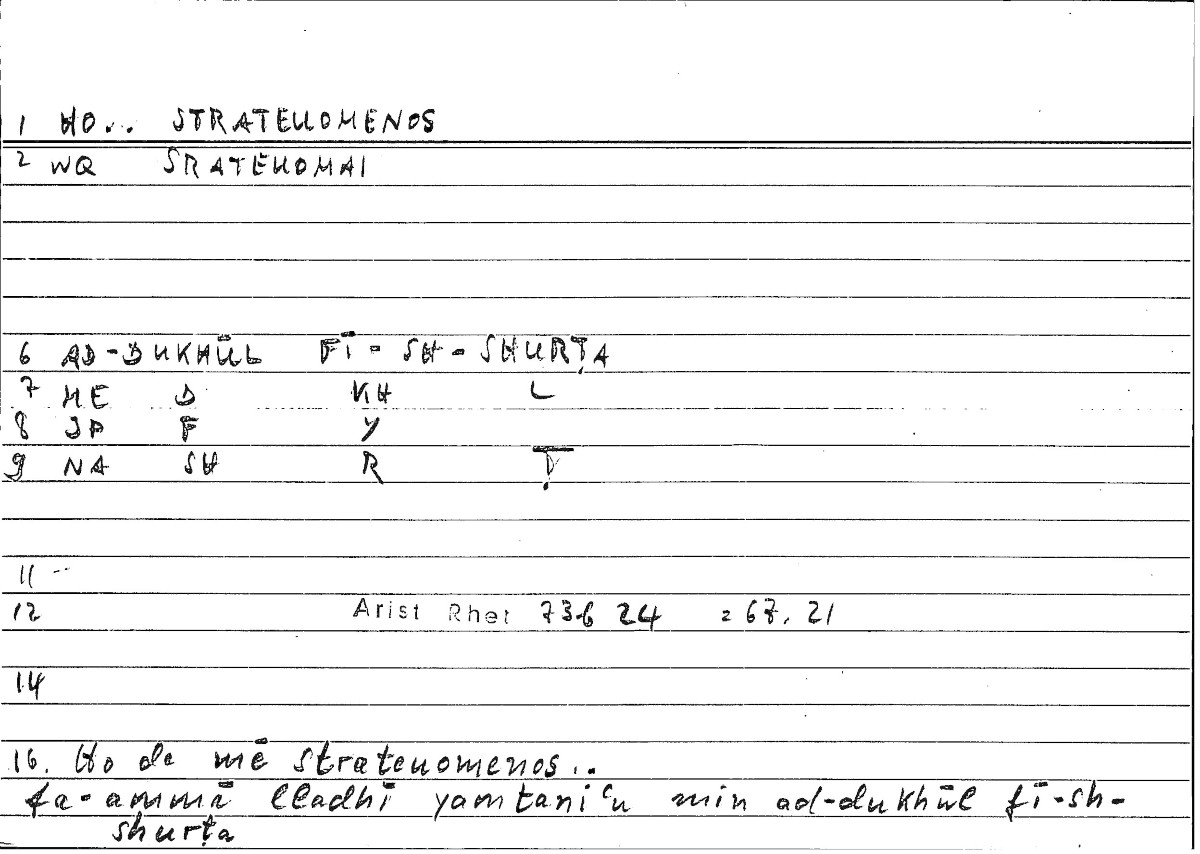 1 HO... STRATEUOMENOS
2 WQ SRATEUOMAI
6 AD-DUKHŪL FĪ-SH-SHURṬA
7 ME D KH L
8 JP F Y
9 NA SH R Ṭ
11 --
12 Arist Rhet 73b 24 = 67, 21
14
16. Ho de mē strateuomenos..
fa-ammā lladhī yamtaniʿu min ad-dukhūl fī-sh-
shurṭa